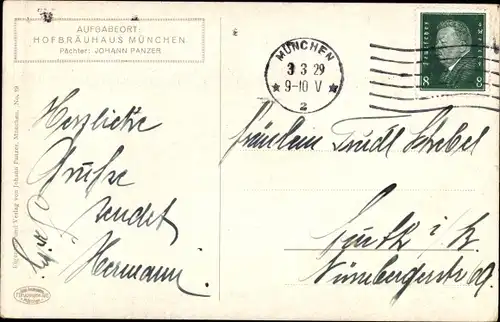 AUFGABEORT:
HOFBRÄUHAUS MÜNCHEN
Pächter: JOHANN PANZER
MÜNCHEN
3 3 29
9-10 V
2
Deutsches Reich
8 8
Herzliche
Grüße
sendet
Hermann.
Fräulein Trudl Schebel
Fürth i. B.
Nürnbergerstr 69.
Verlag von Johann Panzer, München. No. 18